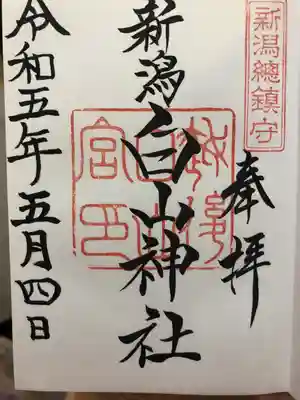 新潟總鎮守
奉拝
新潟白山神社
令和五年五月四日